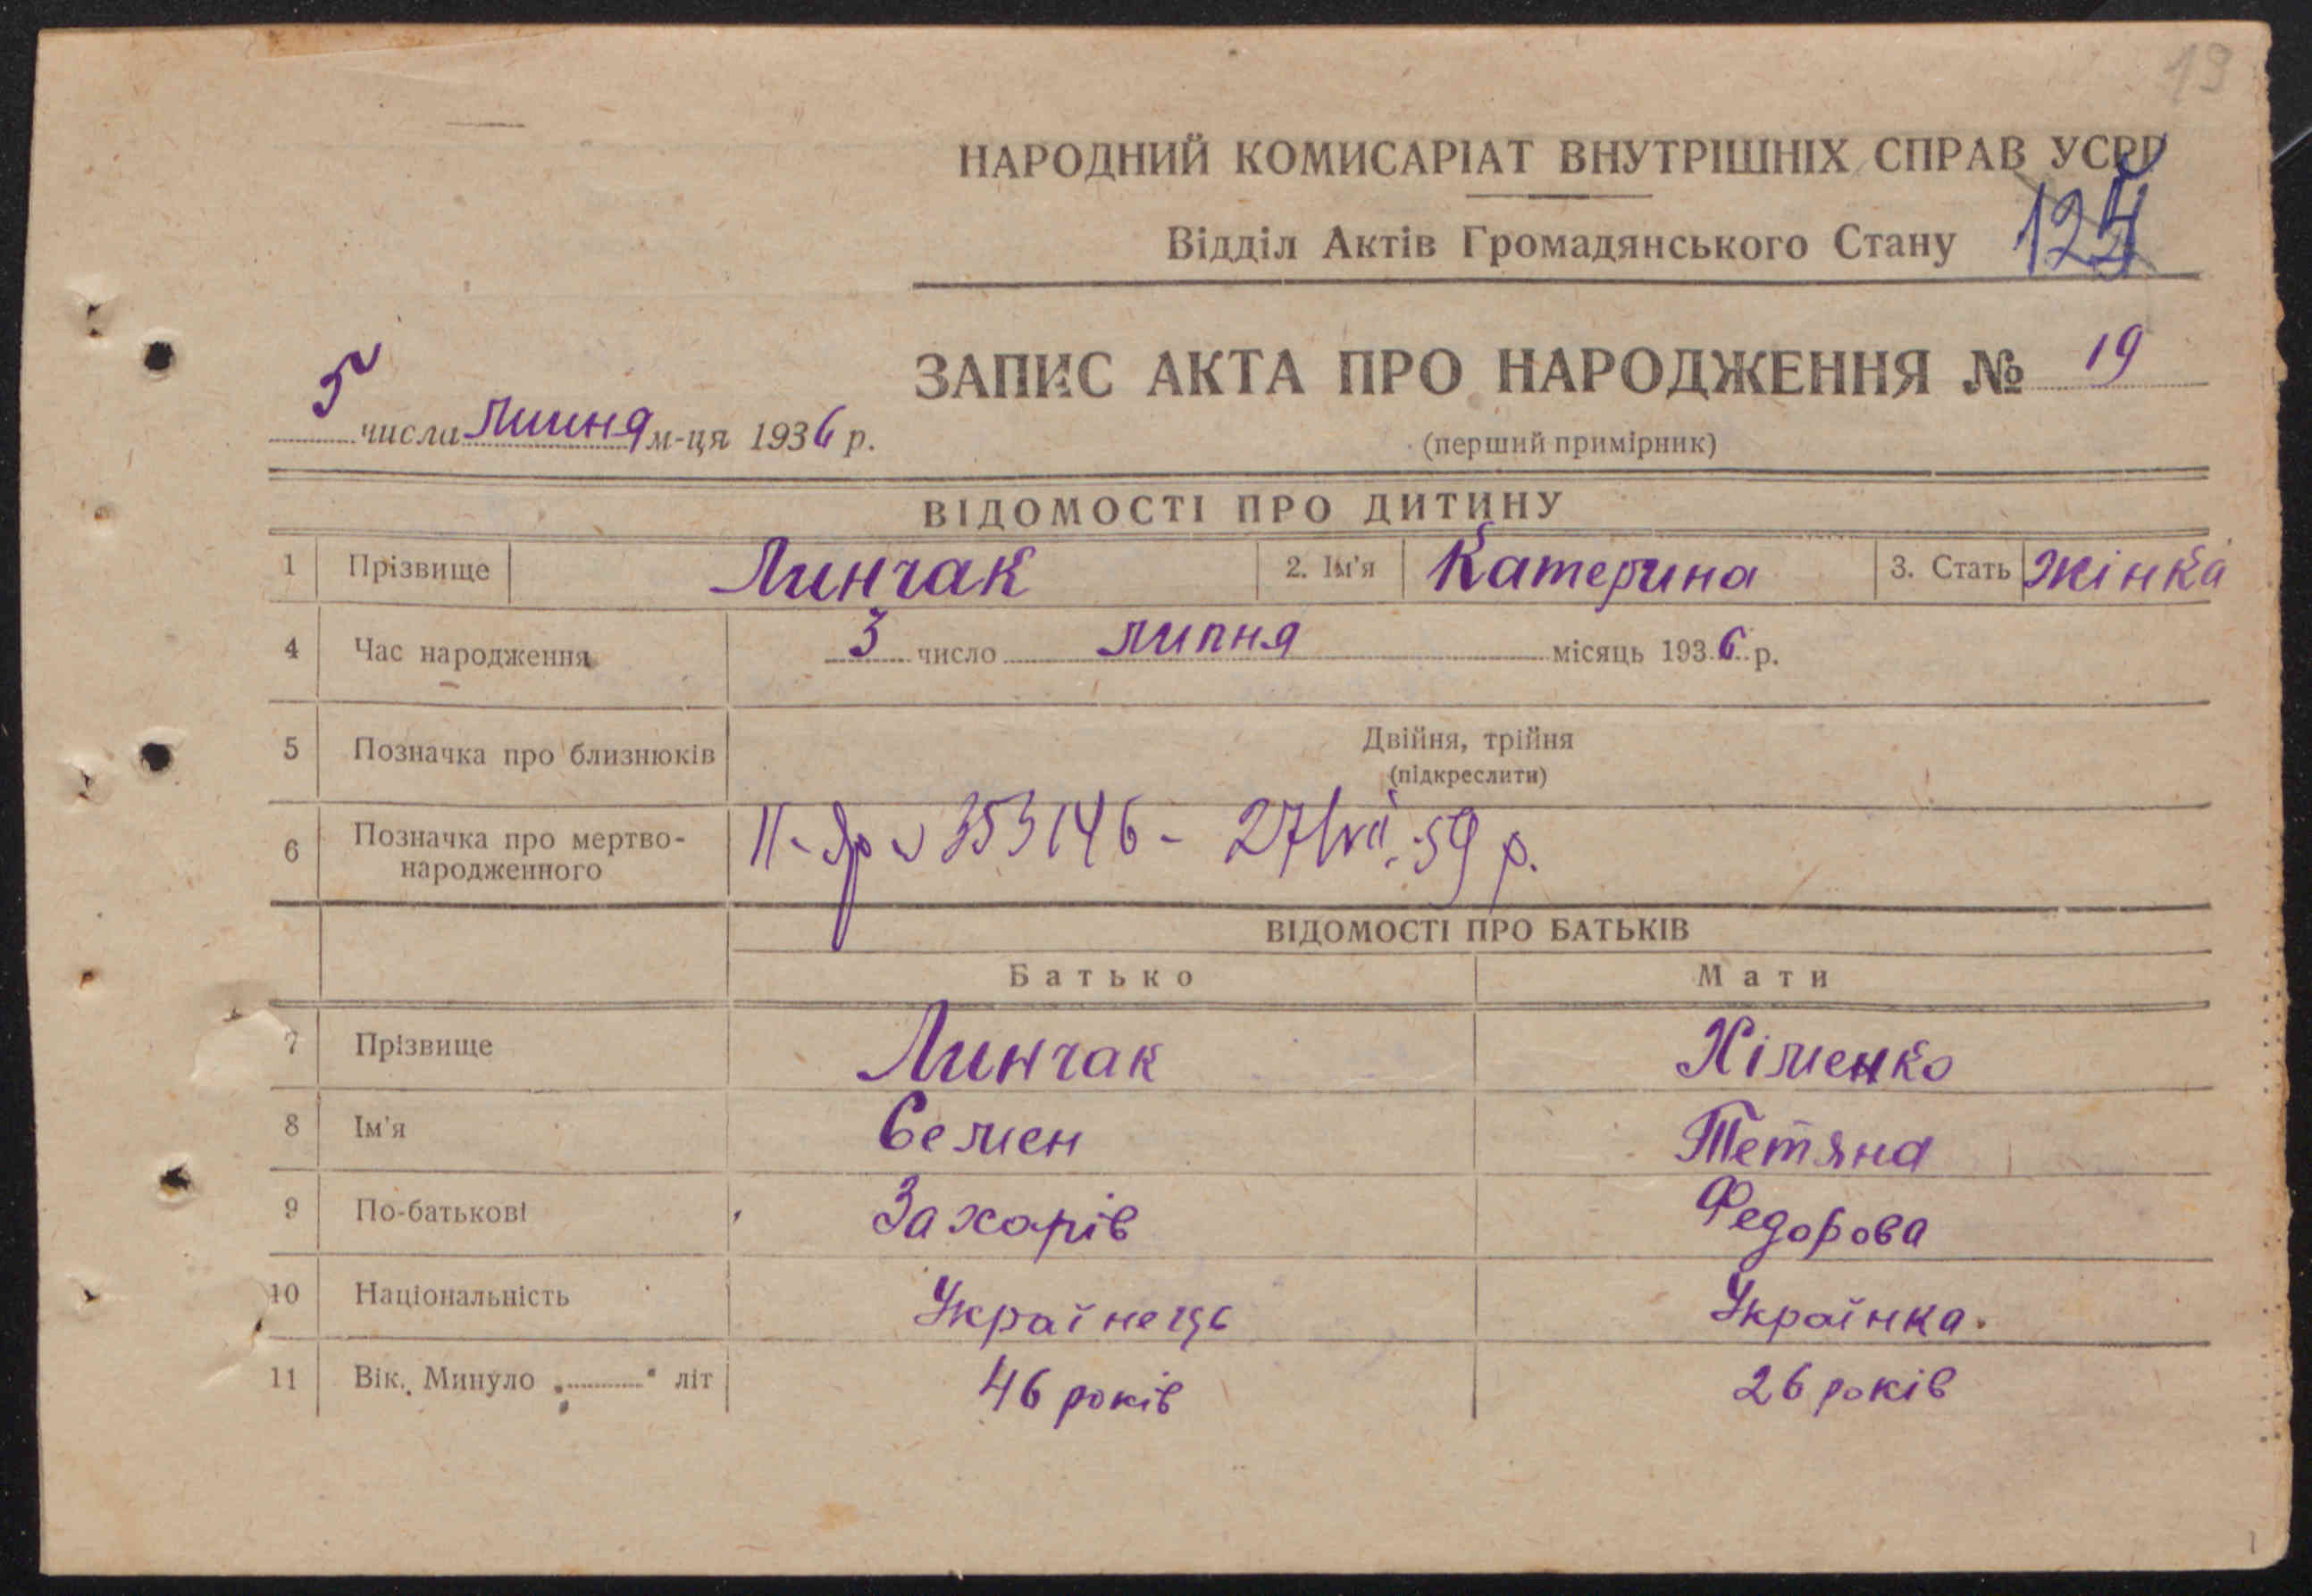 19
НАРОДНИЙ КОМИСАРІАТ ВНУТРІШНІХ СПРАВ УСРР
Відділ Актів Громадянського Стану
ЗАПИС АКТА ПРО НАРОДЖЕННЯ № 19
5 числа липня м-ця 1936 р.
(перший примірник)
ВІДОМОСТІ ПРО ДИТИНУ
1 Прізвище Линчак 2. Ім'я Катерина 3. Стать жінка
4 Час народження 3 число липня місяць 1936 р.
5 Позначка про близнюків Двійня, трійня
(підкреслити)
6 Позначка про мертво-
народженного
353146 - 27/VII.59 р.
ВІДОМОСТІ ПРО БАТЬКІВ
Батько Мати
7 Прізвище Линчак Хіменко
8 Ім'я Семен Тетяна
9 По-батькові Захарів Федорова
10 Національність Українець Українка.
11 Вік. Минуло „ “ літ 46 років 26 років